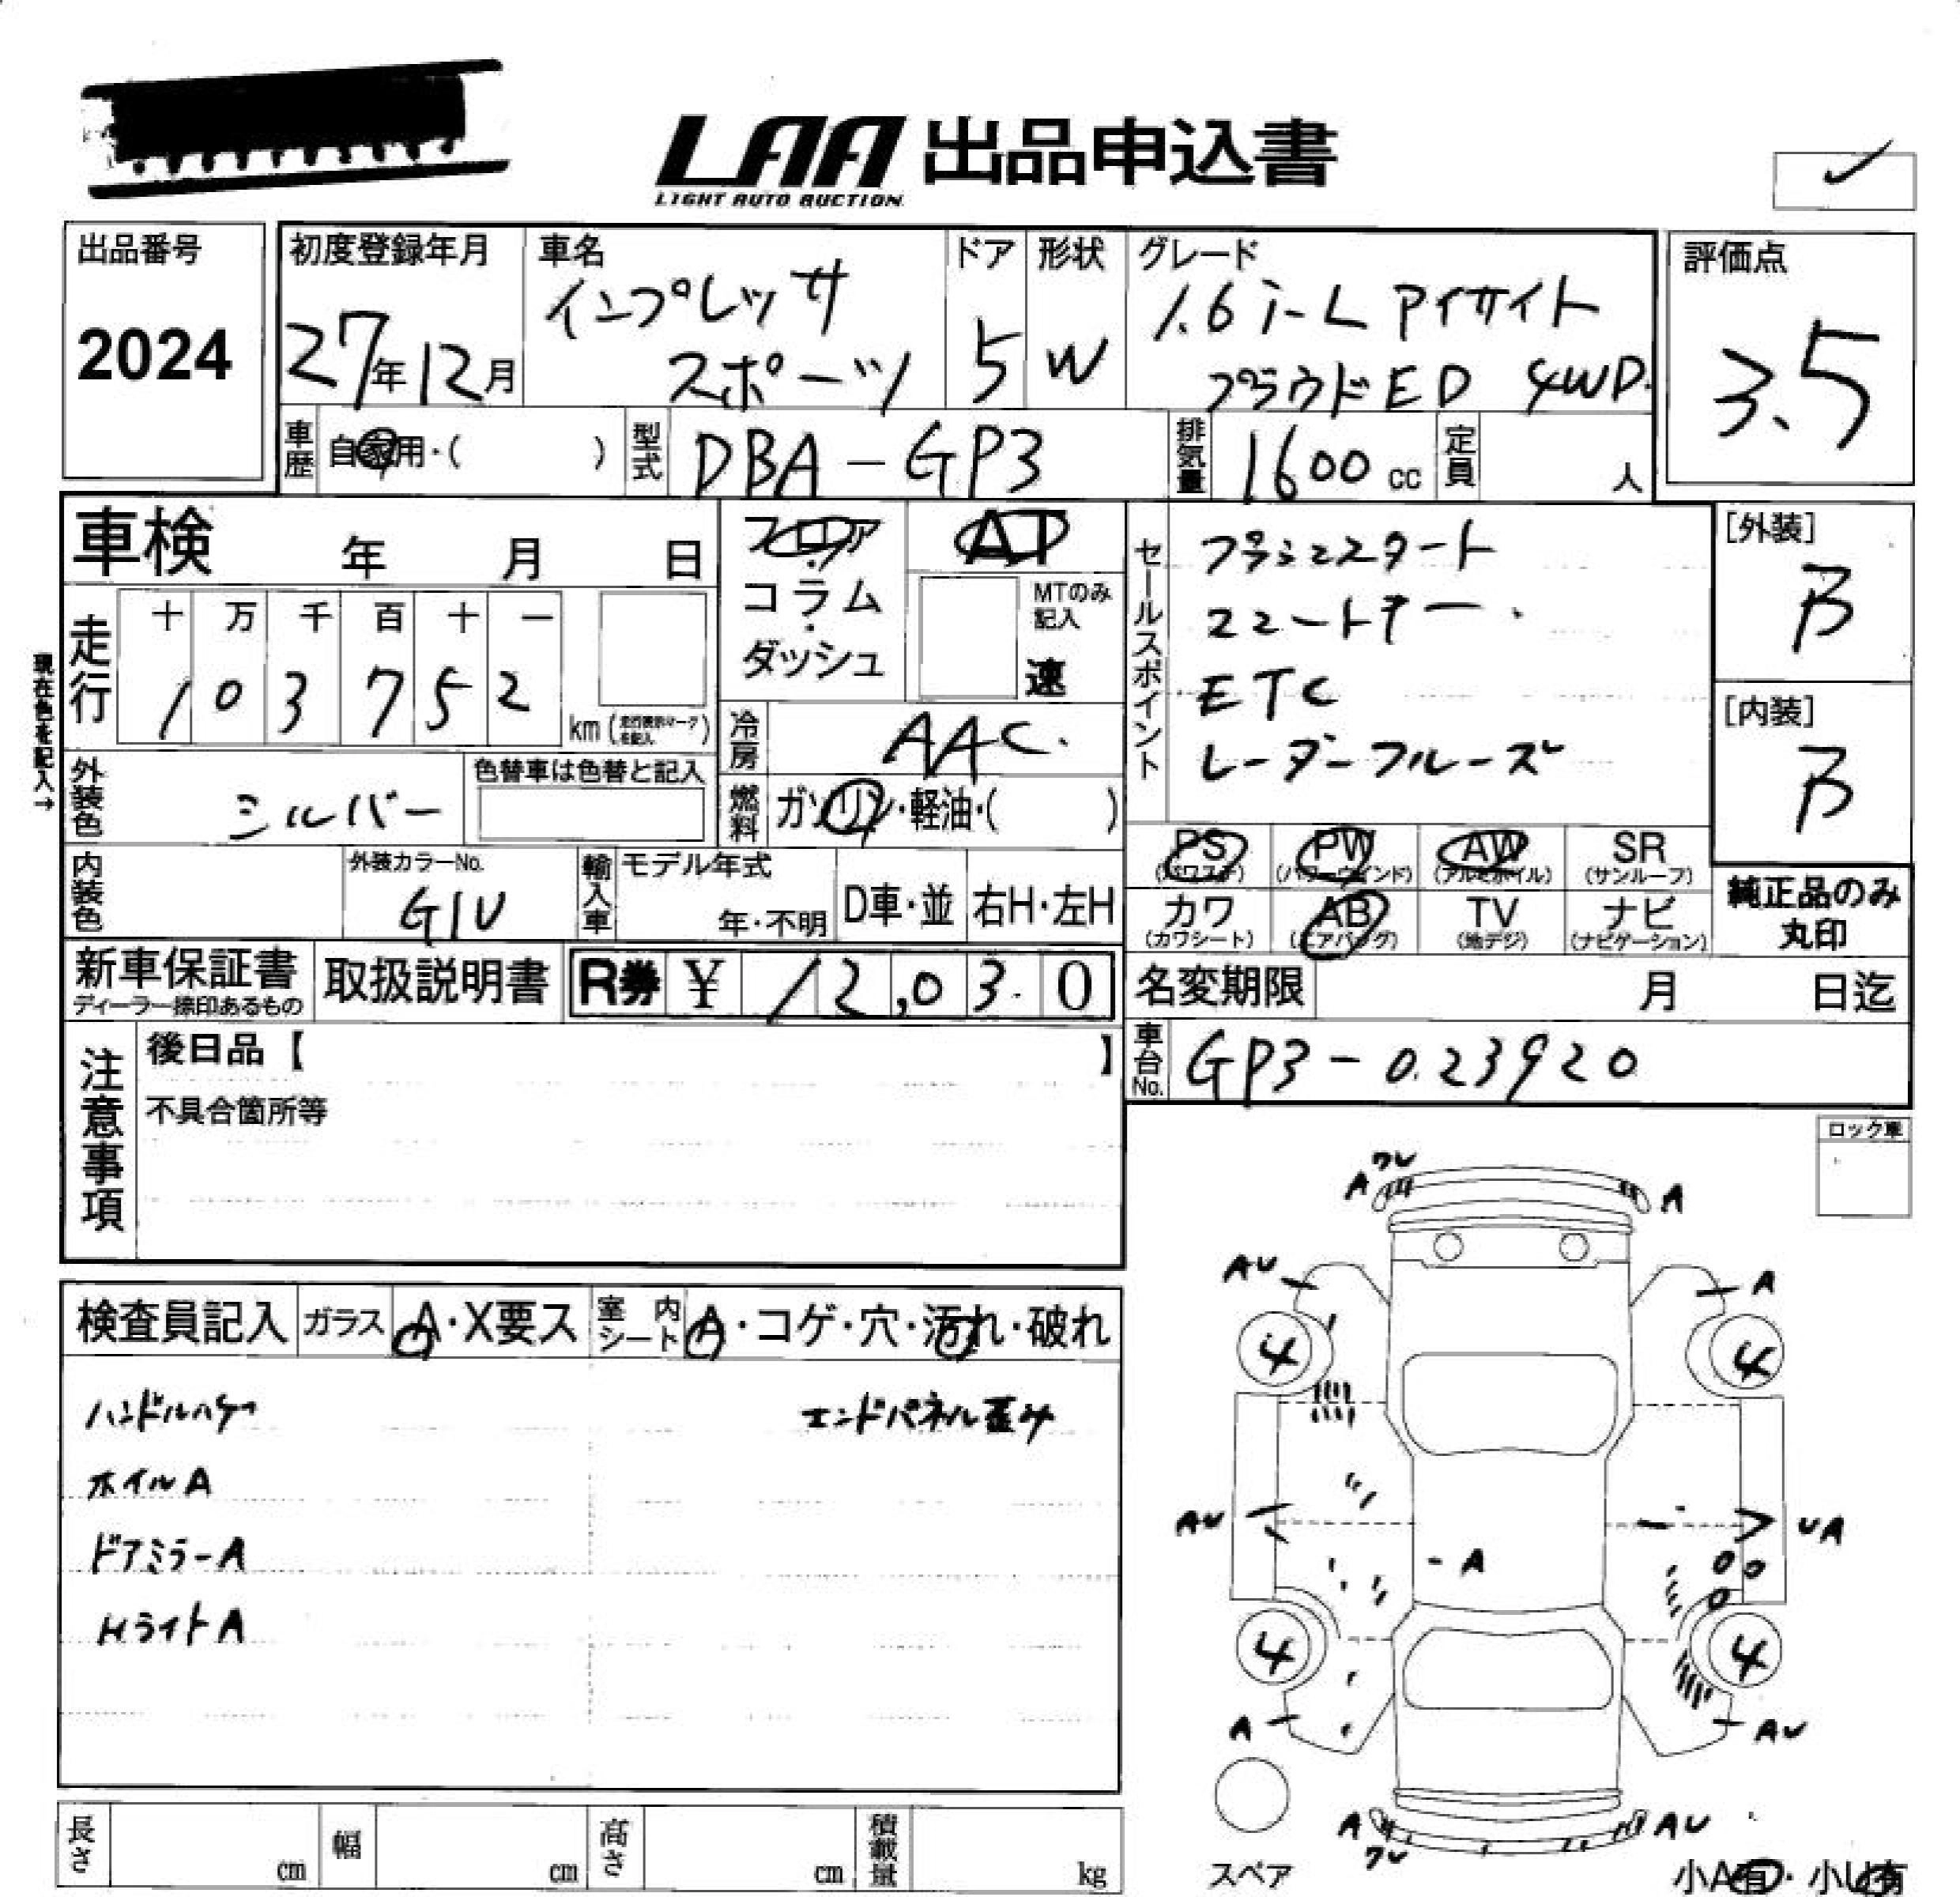 LAA 出品申込書
LIGHT AUTO AUCTION
出品番号
2024
初度登録年月
27年12月
車名
インプレッサ
スポーツ
ドア
5
形状
W
グレード
1.6i-L アイサイト
プラウドED 4WD.
評価点
3.5
車歴
自家用・( )
型式
DBA-GP3
排気量
1600 cc
定員
人
車検 年 月 日
フロア
・
コラム
・
ダッシュ
AT
MTのみ
記入
速
セールスポイント
プッシュスタート
ETC
[外装]
B
[内装]
B
現在色を記入→
走行
十 万 千 百 十 一
1 0 3 7 5 2
km(走行表示マークを記入)
冷房
AAC.
外装色
シルバー
色替車は色替と記入
燃料
ガソリン・軽油・( )
PS
(パワステ)
PW
(パワーウインド)
AW
(アルミホイル)
SR
(サンルーフ)
カワ
(カワシート)
AB
(エアバッグ)
TV
(地デジ)
ナビ
(ナビゲーション)
純正品のみ
丸印
内装色
外装カラーNo.
G1U
輸入車
モデル年式
年・不明
D車・並
右H・左H
新車保証書
ディーラー捺印あるもの
取扱説明書
R券 ¥ 12,03.0
名変期限 月 日迄
注意事項
後日品【 】
不具合箇所等
車台No.
GP3-023920
ロック車
検査員記入
ガラス
A・X要ス
室内
シート
A・コゲ・穴・汚れ・破れ
ハンドルハゲ
エンドパネル歪み
ホイルA
ドアミラーA
HライトA
A ワレ A
AU A
4 4
AU UA
A
4 4
A AU
A ワレ AU
スペア
小A有・小U有
長さ cm
幅 cm
高さ cm
積載量 kg